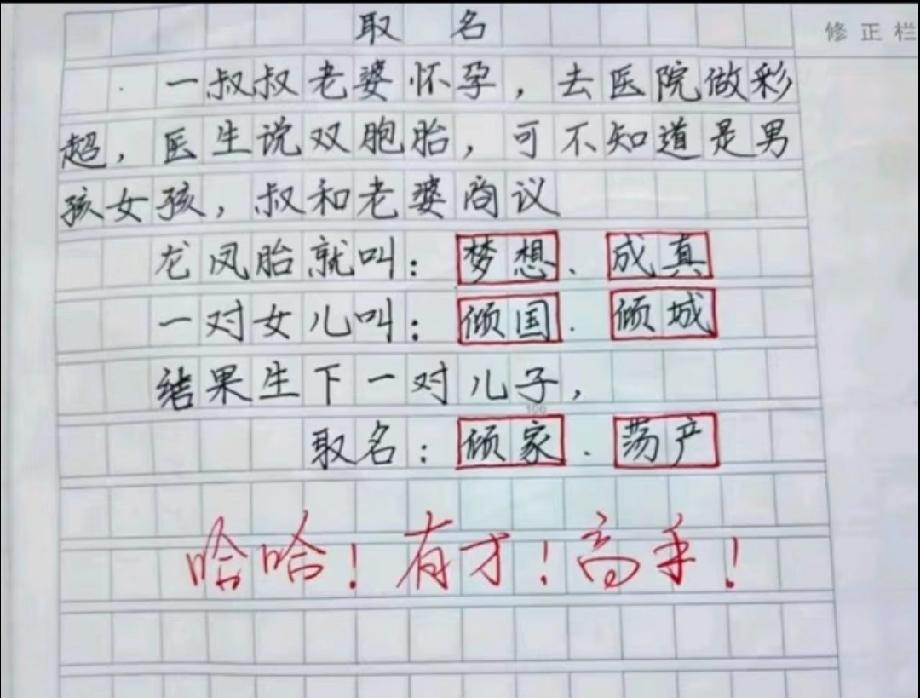 取名
修正栏
一叔叔老婆怀孕，去医院做彩
超，医生说双胞胎，可不知道是男
孩女孩，叔和老婆商议
龙凤胎就叫：梦想．成真
一对女儿叫：倾国．倾城
结果生下一对儿子，
取名：倾家．荡产
哈哈！有才！高手！